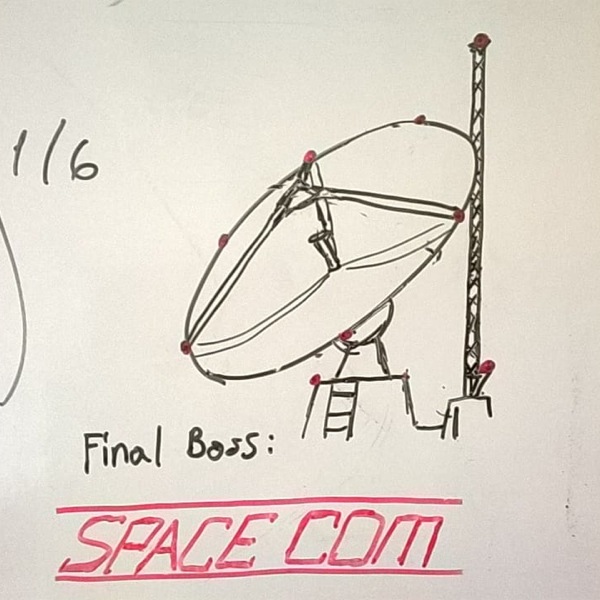 1/6
Final Boss:
SPACE COM